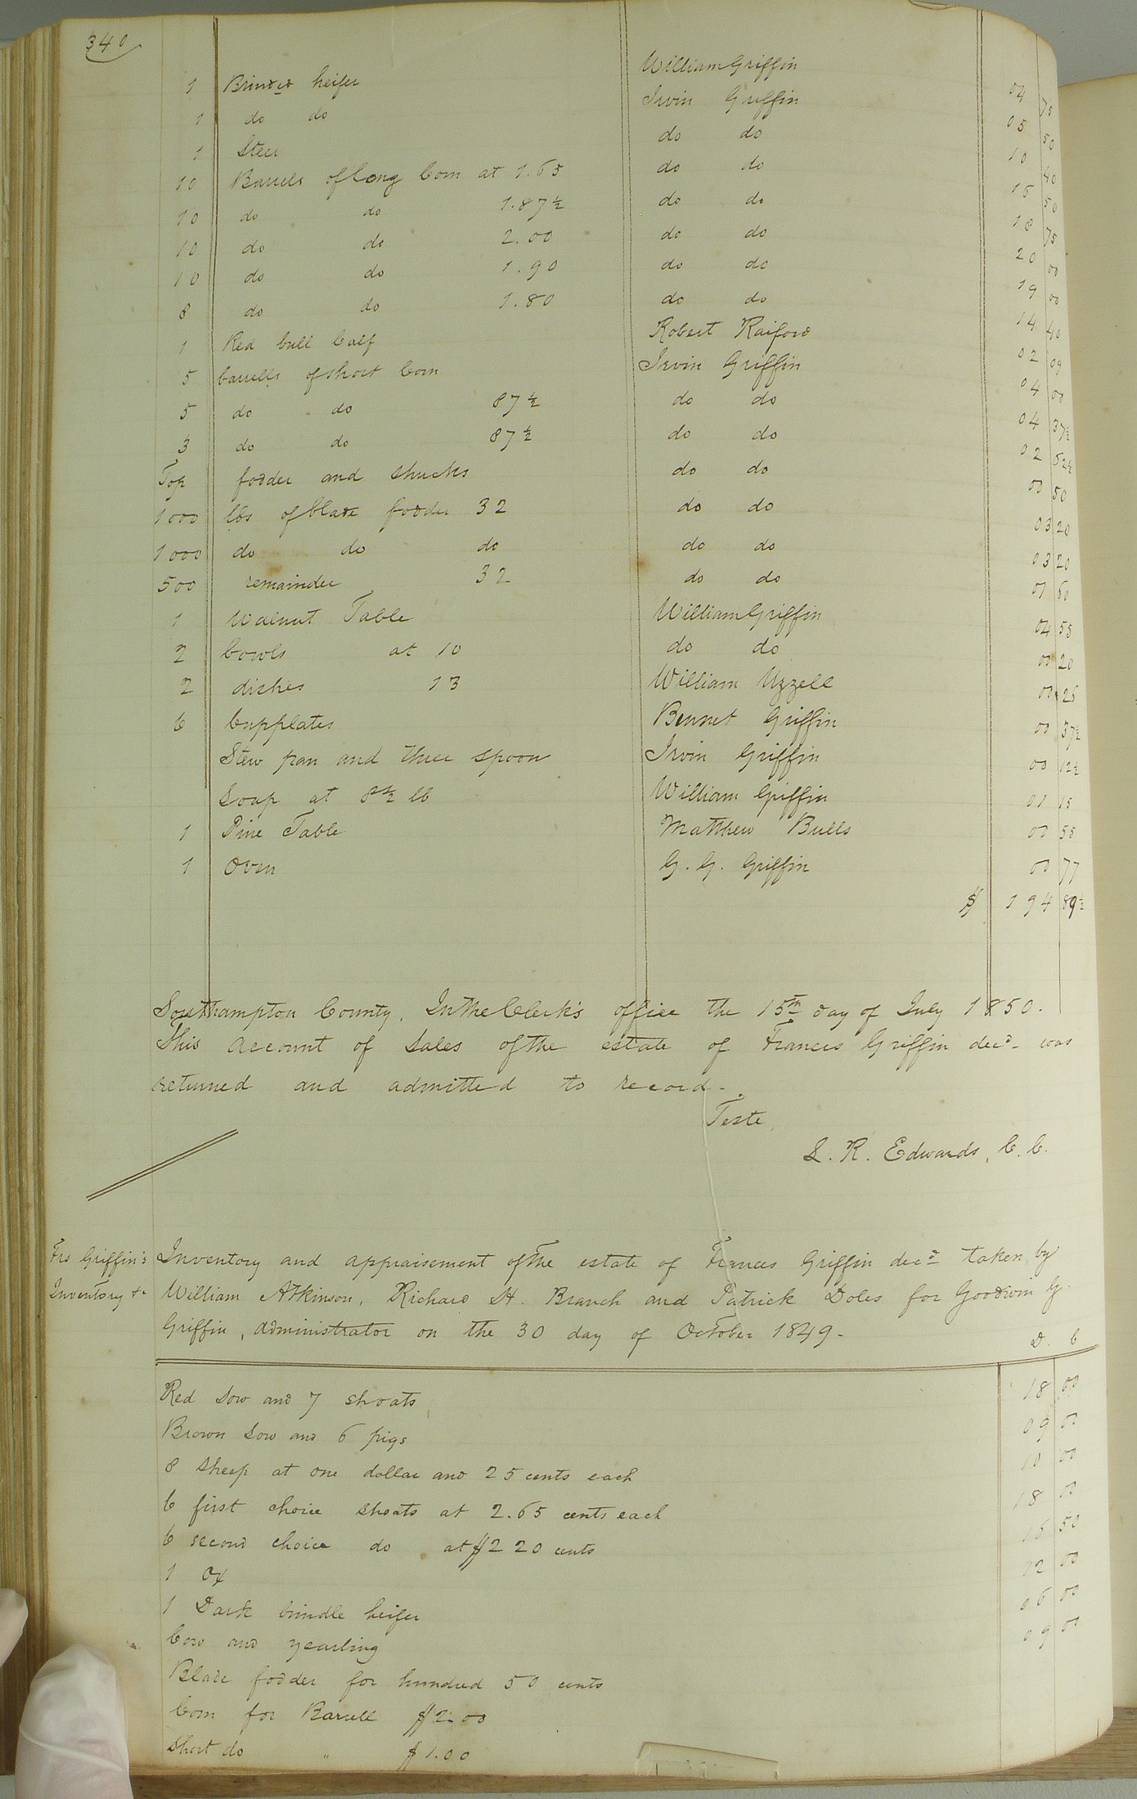 340
1 Brinded heifer William Griffin 04 75
1 do do Irvin Griffin 05 50
1 Steer do do 10 40
10 Barrels of long Corn at 1.65 do do 16 50
10 do do 1.87½ do do 18 75
10 do do 2.00 do do 20 00
10 do do 1.90 do do 19 00
8 do do 1.80 do do 14 40
1 Red bull Calf Robert Raiford 02 09
5 barrells of short Corn Irvin Griffin 04 00
5 do do 87½ do do 04 37½
3 do do 87½ do do 02 62½
Top fodder and shucks do do 00 50
1000 lbs of blade fodder 32 do do 03 20
1000 do do do do do 03 20
500 remainder 32 do do 01 60
1 Walnut Table William Griffin 04 55
2 bowls at 10 do do 00 20
2 dishes 13 William Uzzell 00 26
6 Cupplates Bennet Griffin 00 37½
Stew pan and three spoon Irvin Griffin 00 12½
Soap at 8½ lb William Griffin 01 15
1 Pine Table Matthew Bulls 00 55
1 Oven G. G. Griffin 00 77
$ 194 89½
Southampton County, In the Clerk's office the 15th day of July 1850.
This account of Sales of the estate of Frances Griffin decd was
returned and admitted to record.
Teste,
L. R. Edwards, C. C.
Frs Griffin's Inventory and appraisement of the estate of Frances Griffin decd taken by
Inventory &c William Atkinson, Richard H. Branch and Patrick Doles for Goodwin G
Griffin, administrator on the 30 day of October 1849.
D. C
Red Sow and 7 shoats 18 00
Brown Sow and 6 pigs 09 00
8 sheep at one dollar and 25 cents each 10 00
6 first choice shoats at 2.65 cents each 18 00
6 second choice do at $2 20 cents 16 50
1 Ox 12 00
1 Dark brindle heifer 06 00
Cow and yearling 09 00
Blade fodder for hundred 50 cents
Corn for Barrell $2.00
Short do " $1.00